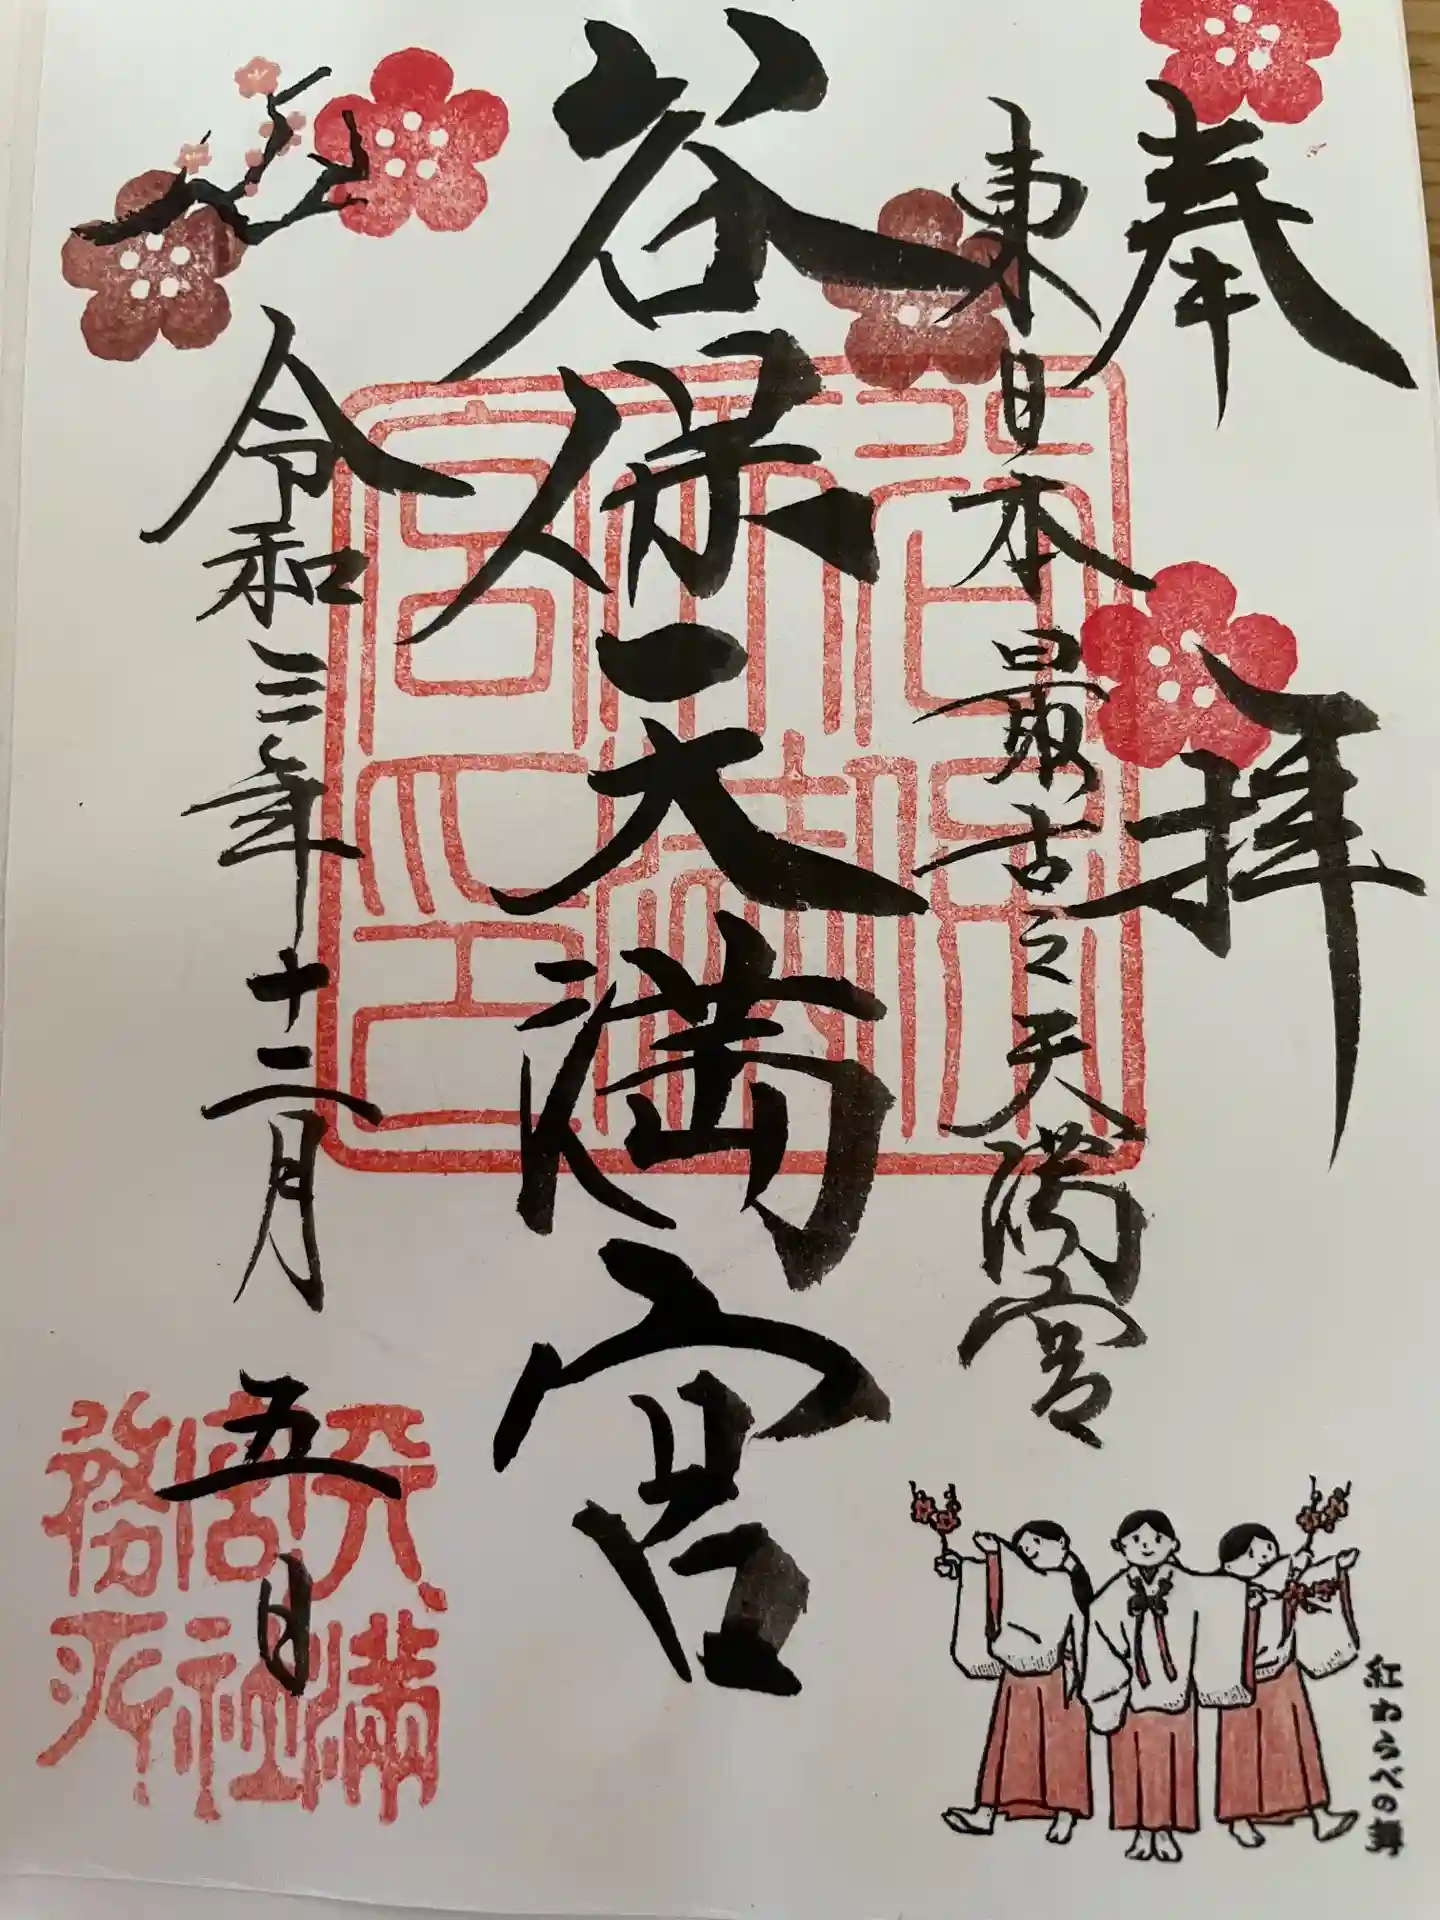 奉拝
東日本最古之天満宮
谷保天満宮
令和三年十二月五日
天満
宮社
務所
紅わらべの舞